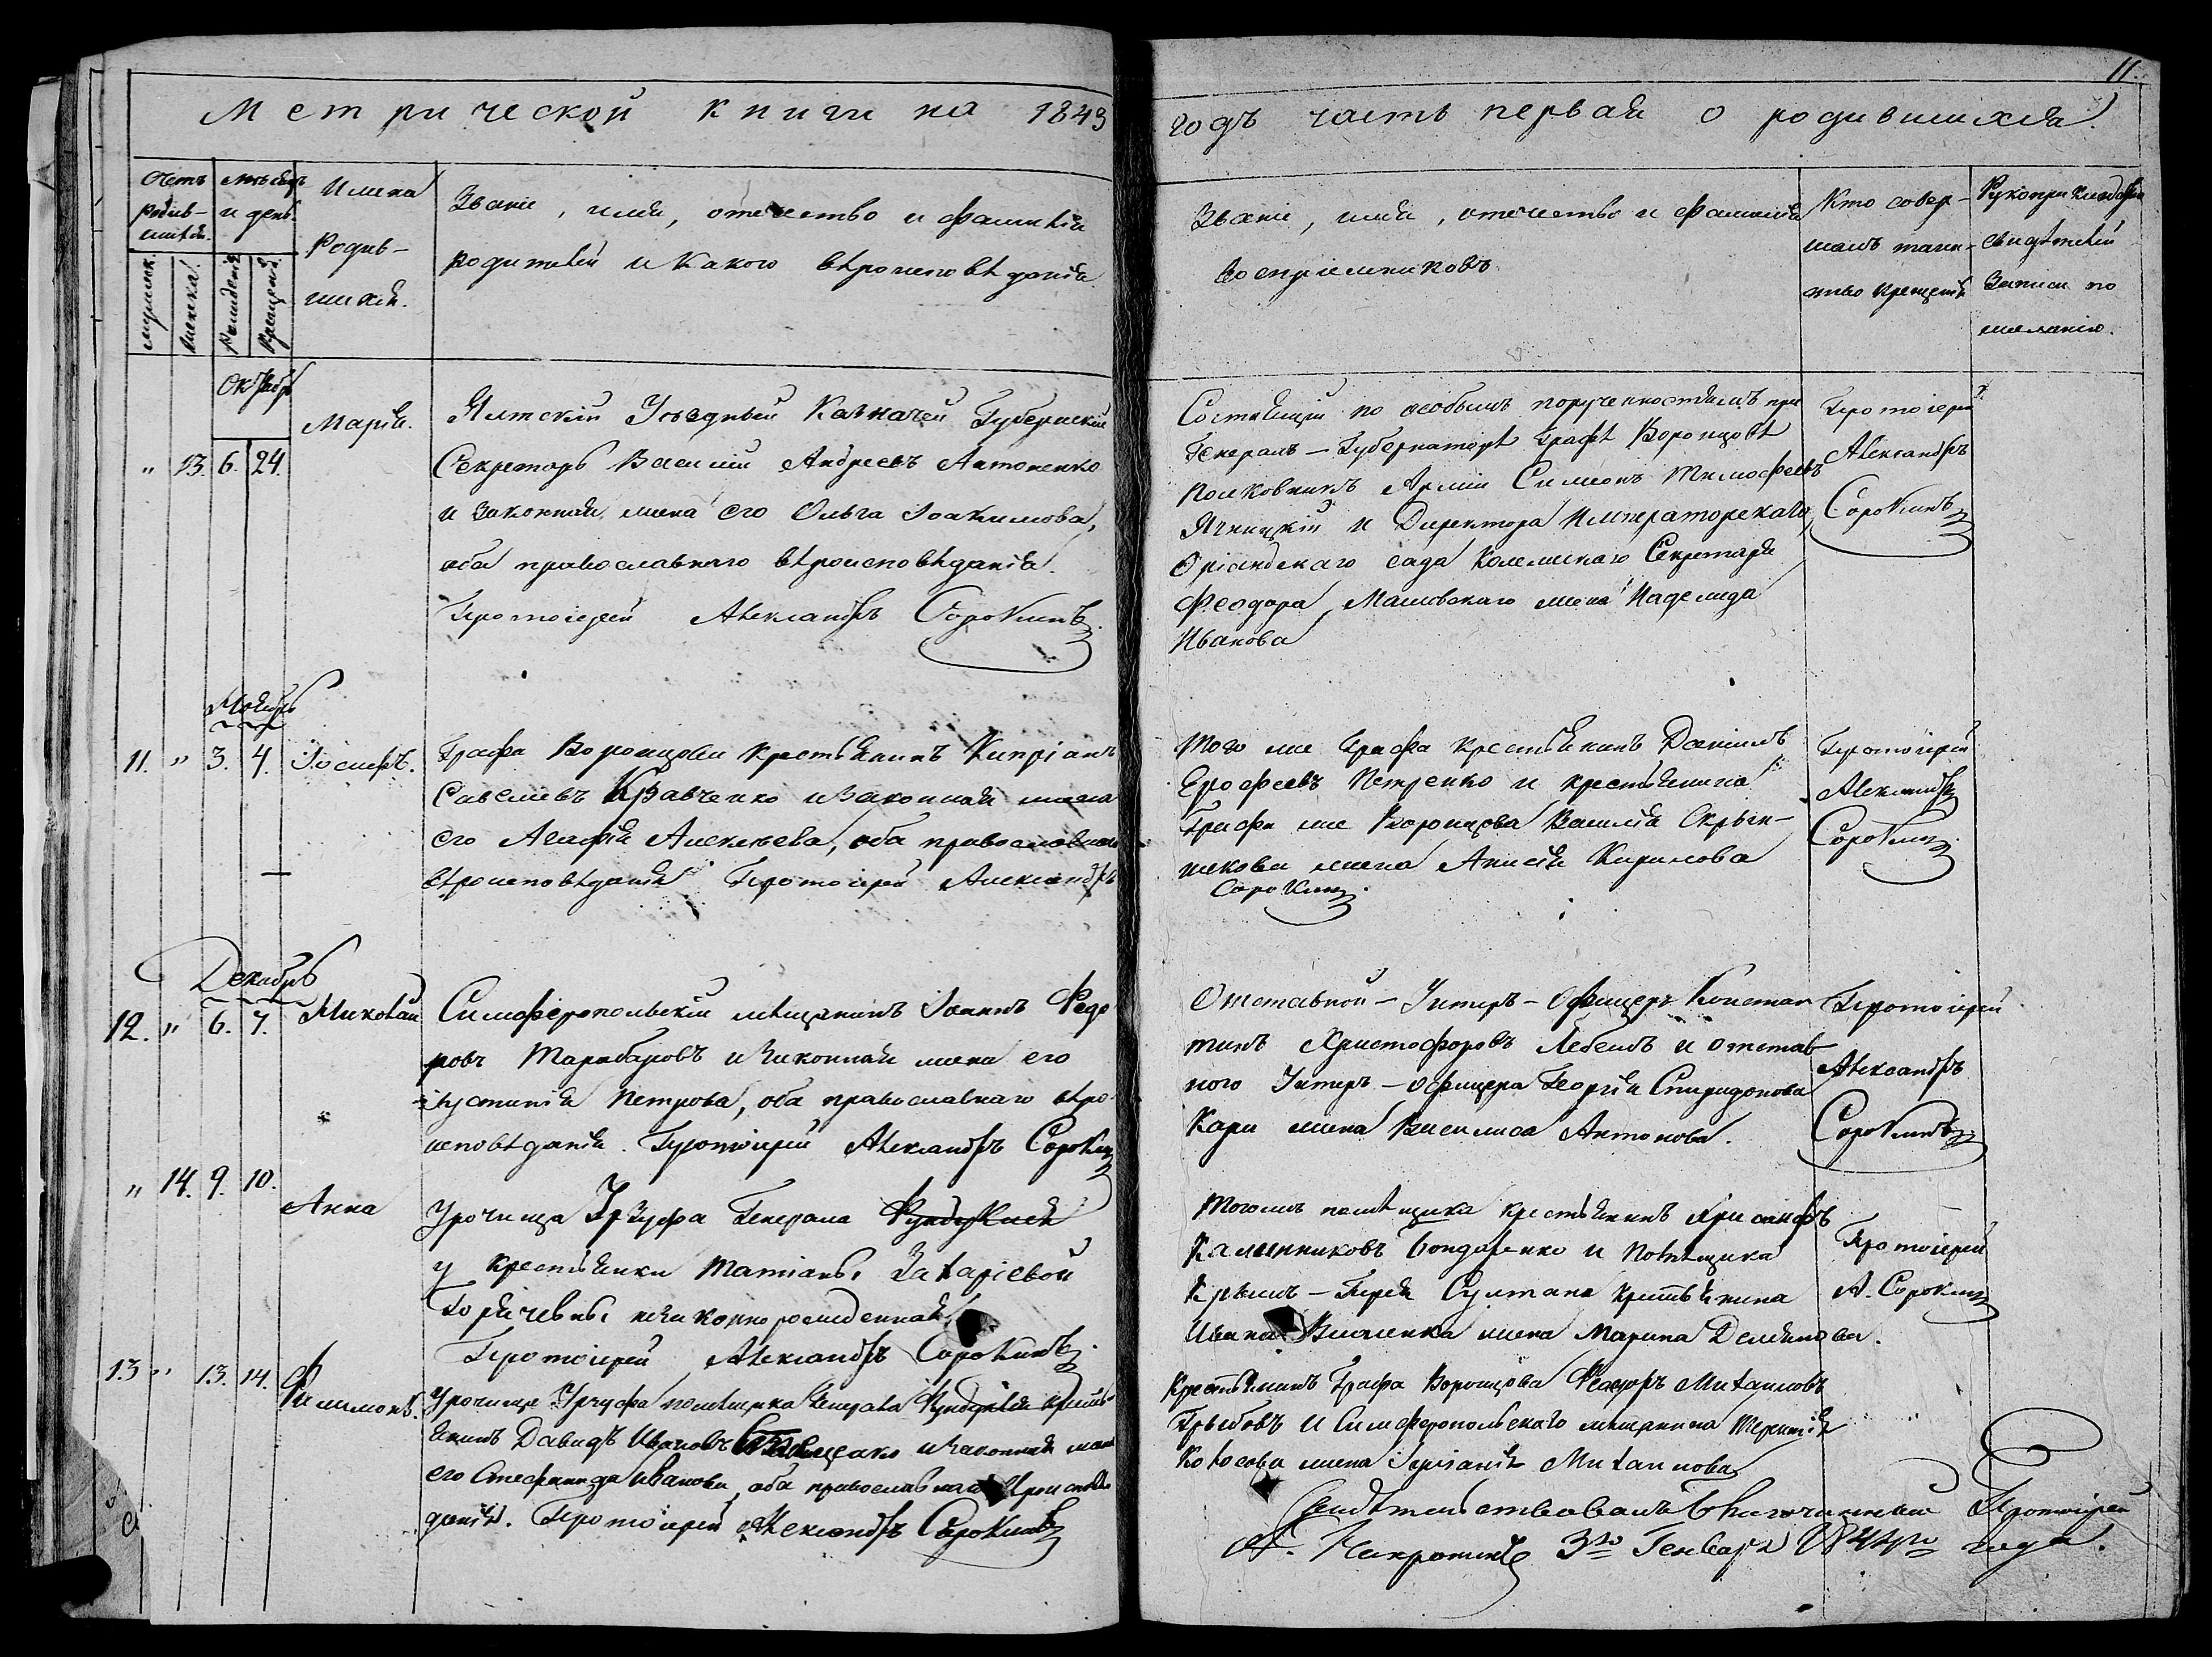 11.
Метрической книги на 1843
годъ часть первая о родившихся.
Счетъ родив-шихся.
Мѣсяцъ и день.
мужеск.
женска.
Рожденія
Крещенія.
Имена Родив-шихся.
Званіе, имя, отечество и фамилія
родителей и какого вѣроисповѣданія.
Званіе, имя, отечество и фамилія
воспріемниковъ
Кто совер-
шалъ таин-
ство крещенія
Рукоприкладство
свидѣтелей
записи по
желанію.
Октябрь
" 13. 6. 24.
Марія.
Ялтскій Уѣздный Казначей Губернскій
Секретарь Василій Андреевъ Антоненко
и законная жена его Ольга Іоакимова,
оба православнаго вѣроисповѣданія.
Протоіерей Александръ Сорокинъ.
Состоящій по особымъ порученностямъ при
Генералъ-Губернаторѣ Графѣ Воронцовѣ
Полковникъ Арміи Симеонъ Тимофеевъ
Ячницкій и Директора Императорскаго
Оріандскаго сада Коллежскаго Секретаря
Феодора Машовскаго жена Надежда
Иванова
Протоіерей
Александръ
Сорокинъ
Ноябрь
11. " 3. 4. Іосифъ.
Графа Воронцова крестьянинъ Кипріанъ
Савельевъ Кравченко и законная жена
его Агафія Алексѣева, оба православнаго
вѣроисповѣданія Протоіерей Александръ
Сорокинъ.
Того же Графа крестьянинъ Даніилъ
Ерофеевъ Петренко и крестьянина
Графа же Воронцова Василія Скрын-
жена Анисія Кирилова
Протоіерей
Александръ
Сорокинъ.
Декабрь
12. " 6. 7. Николай
Симферопольскій мѣщанинъ Іоаннъ Федо
ровъ и законная жена его
Іустинія Петрова, оба православнаго вѣро-
исповѣданія. Протоіерей Александръ Сорокинъ
Отставной-Унтеръ-Офицеръ Констан
тинъ Христофоровъ и отстав
ного Унтеръ-офицера Георгія Спиридонова
Кари жена Василиса Антонова.
Протоіерей
Александръ
Сорокинъ
" 14. 9. 10.
Анна
Урочища Урзуфа Генерала Фундуклея
у крестьянки Татіаны Захаріевой
незаконнорожденная
Протоіерей Александръ Сорокинъ.
Тогожъ помѣщика крестьянинъ Хрисанфъ
Калинниковъ Бондаренко и Помѣщика
Крымъ-Гирея Султана крестьянина
Ивана жена Марина
Протоіерей
А. Сорокинъ
13 " 13. 14. Филимонъ.
Урочища Урзуфа помѣщика Генерала Фундуклея кресть-
янинъ Давидъ Ивановъ и законная жена
его Стефанида Иванова, оба православнаго вѣроисповѣ
данія. Протоіерей Александръ Сорокинъ
Крестьянинъ Графа Воронцова Феодоръ Михаиловъ
Грыбовъ и Симферопольскаго мѣщанина Терентія
жена Михаилова
Свидѣтельствовалъ благочинный Протоіерей
3го Генваря 1844го года.